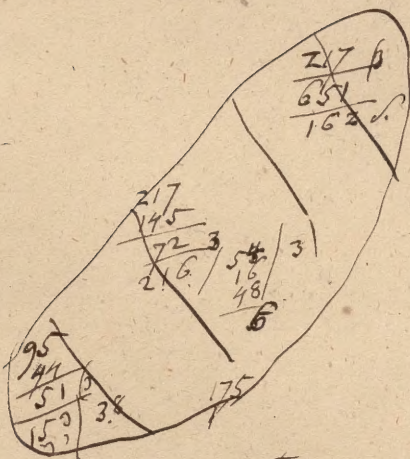 217 3
651
162
217
145
72 3
216
54 3
16
48
6
95
44
51 3
153
38
175